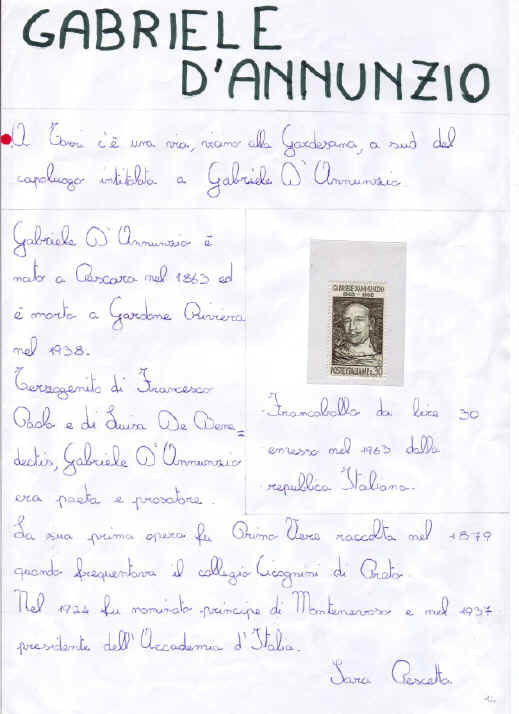 GABRIELE
D'ANNUNZIO
A Torri c'è una via, vicino alla Gardesana, a sud del
capoluogo intitolata a Gabriele D'Annunzio.
Gabriele D'Annunzio è
nato a Pescara nel 1863 ed
è morto a Gardone Riviera
nel 1938.
Terzogenito di Francesco
Paolo e di Luisa De Bene=
dectis, Gabriele D'Annunzio
era poeta e prosatore.
GABRIELE D'ANNUNZIO
1863 - 1963
POSTE ITALIANE L. 30
Francobollo da lire 30
emesso nel 1963 dalla
repubblica Italiana.
La sua prima opera fu Primo Vere raccolta nel 1879
quando frequentava il collegio Cicognini di Prato.
Nel 1924 fu nominato principe di Montenevoso e nel 1937
presidente dell'Accademia d'Italia.
Sara Pescetta